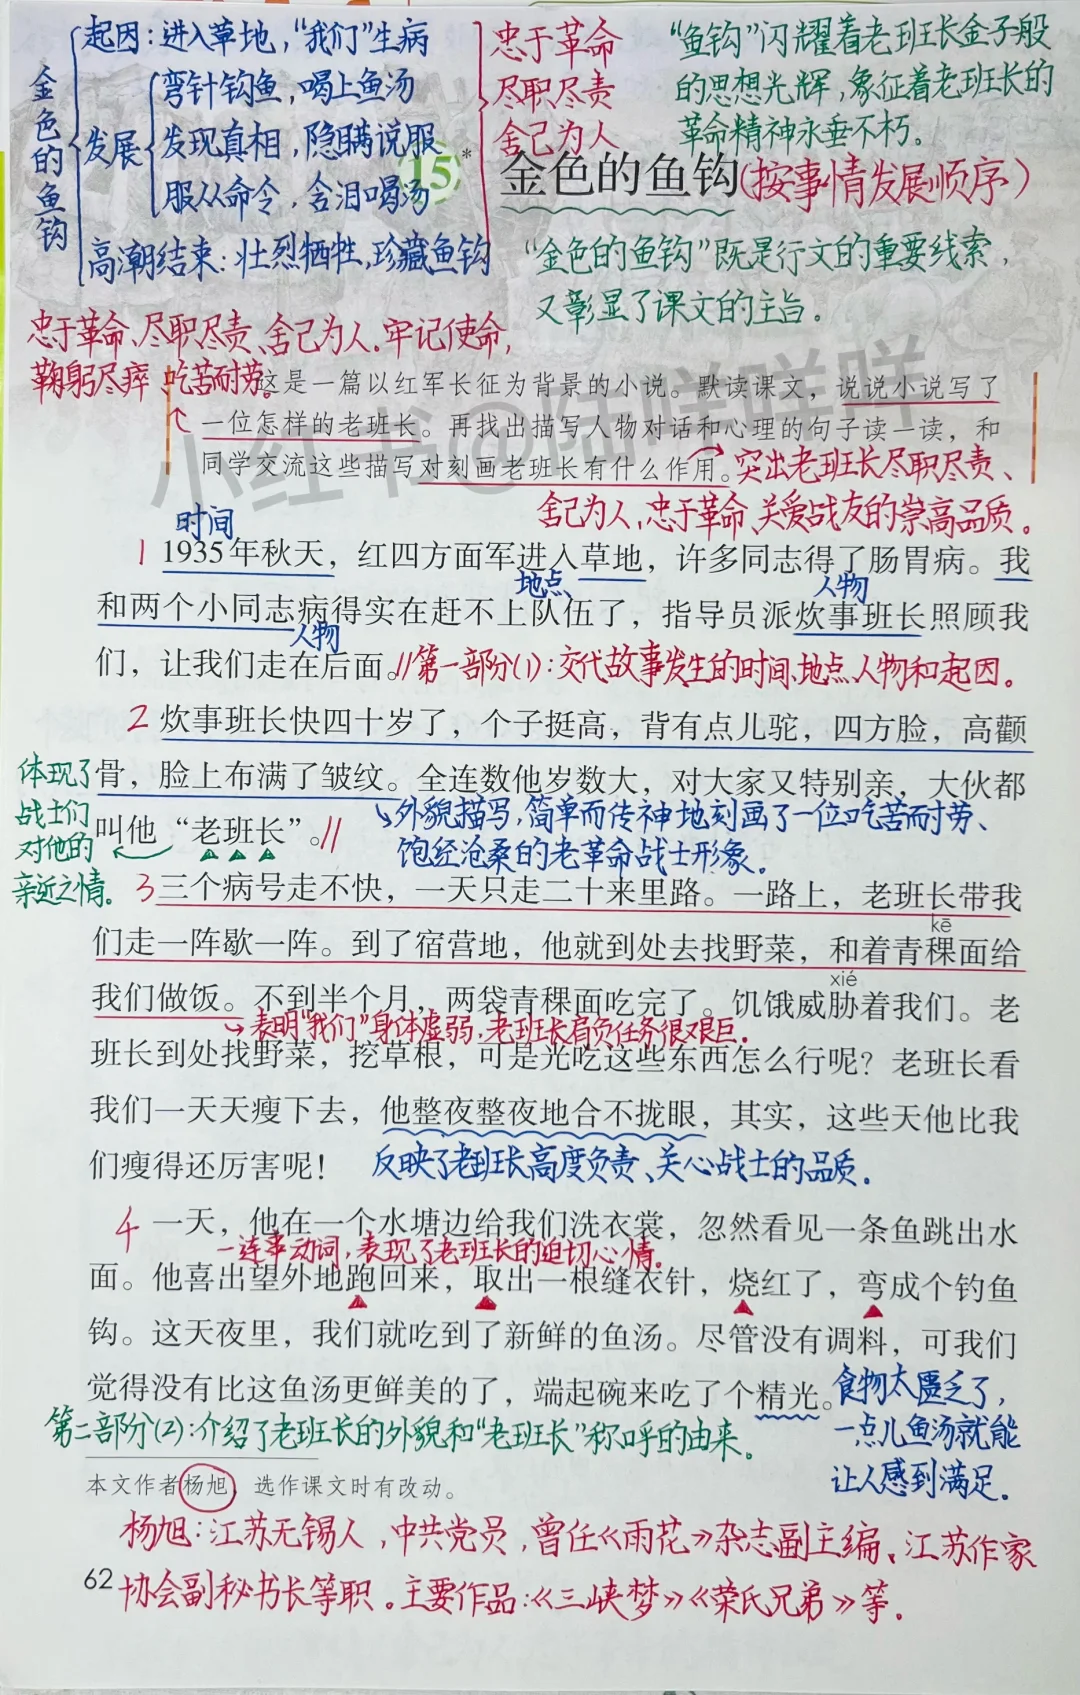 金色的鱼钩
起因：进入草地，“我们”生病
发展
弯针钩鱼，喝上鱼汤
发现真相，隐瞒说服
服从命令，含泪喝汤
高潮结束：壮烈牺牲，珍藏鱼钩
忠于革命
尽职尽责
舍己为人
“鱼钩”闪耀着老班长金子般
的思想光辉，象征着老班长的
革命精神永垂不朽。
15*
金色的鱼钩(按事情发展顺序)
“金色的鱼钩”既是行文的重要线索，
又彰显了课文的主旨。
忠于革命、尽职尽责、舍己为人、牢记使命，
鞠躬尽瘁、吃苦耐劳。
这是一篇以红军长征为背景的小说。默读课文，说说小说写了
一位怎样的老班长。再找出描写人物对话和心理的句子读一读，和
同学交流这些描写对刻画老班长有什么作用。
突出老班长尽职尽责、
舍己为人，忠于革命、关爱战友的崇高品质。
小红书@陆咩咩咩
时间
1 1935年秋天，红四方面军进入草地，许多同志得了肠胃病。我
地点
人物
和两个小同志病得实在赶不上队伍了，指导员派炊事班长照顾我
人物
们，让我们走在后面。//第一部分(1)：交代故事发生的时间、地点、人物和起因。
2 炊事班长快四十岁了，个子挺高，背有点儿驼，四方脸，高颧
骨，脸上布满了皱纹。全连数他岁数大，对大家又特别亲，大伙都
叫他“老班长”。//
外貌描写，简单而传神地刻画了一位吃苦耐劳、
饱经沧桑的老革命战士形象。
体现了
战士们
对他的
亲近之情。
3 三个病号走不快，一天只走二十来里路。一路上，老班长带我
kē
们走一阵歇一阵。到了宿营地，他就到处去找野菜，和着青稞面给
xié
我们做饭。不到半个月，两袋青稞面吃完了。饥饿威胁着我们。老
表明“我们”身体虚弱，老班长肩负任务很艰巨。
班长到处找野菜，挖草根，可是光吃这些东西怎么行呢？老班长看
我们一天天瘦下去，他整夜整夜地合不拢眼，其实，这些天他比我
们瘦得还厉害呢！
反映了老班长高度负责、关心战士的品质。
4 一天，他在一个水塘边给我们洗衣裳，忽然看见一条鱼跳出水
一连串动词，表现了老班长的迫切心情。
面。他喜出望外地跑回来，取出一根缝衣针，烧红了，弯成个钓鱼
钩。这天夜里，我们就吃到了新鲜的鱼汤。尽管没有调料，可我们
觉得没有比这鱼汤更鲜美的了，端起碗来吃了个精光。
食物太匮乏了，
一点儿鱼汤就能
让人感到满足。
第二部分(2)：介绍了老班长的外貌和“老班长”称呼的由来。
本文作者杨旭，选作课文时有改动。
杨旭：江苏无锡人，中共党员，曾任《雨花》杂志副主编、江苏作家
协会副秘书长等职。主要作品：《三峡梦》《荣氏兄弟》等。
62